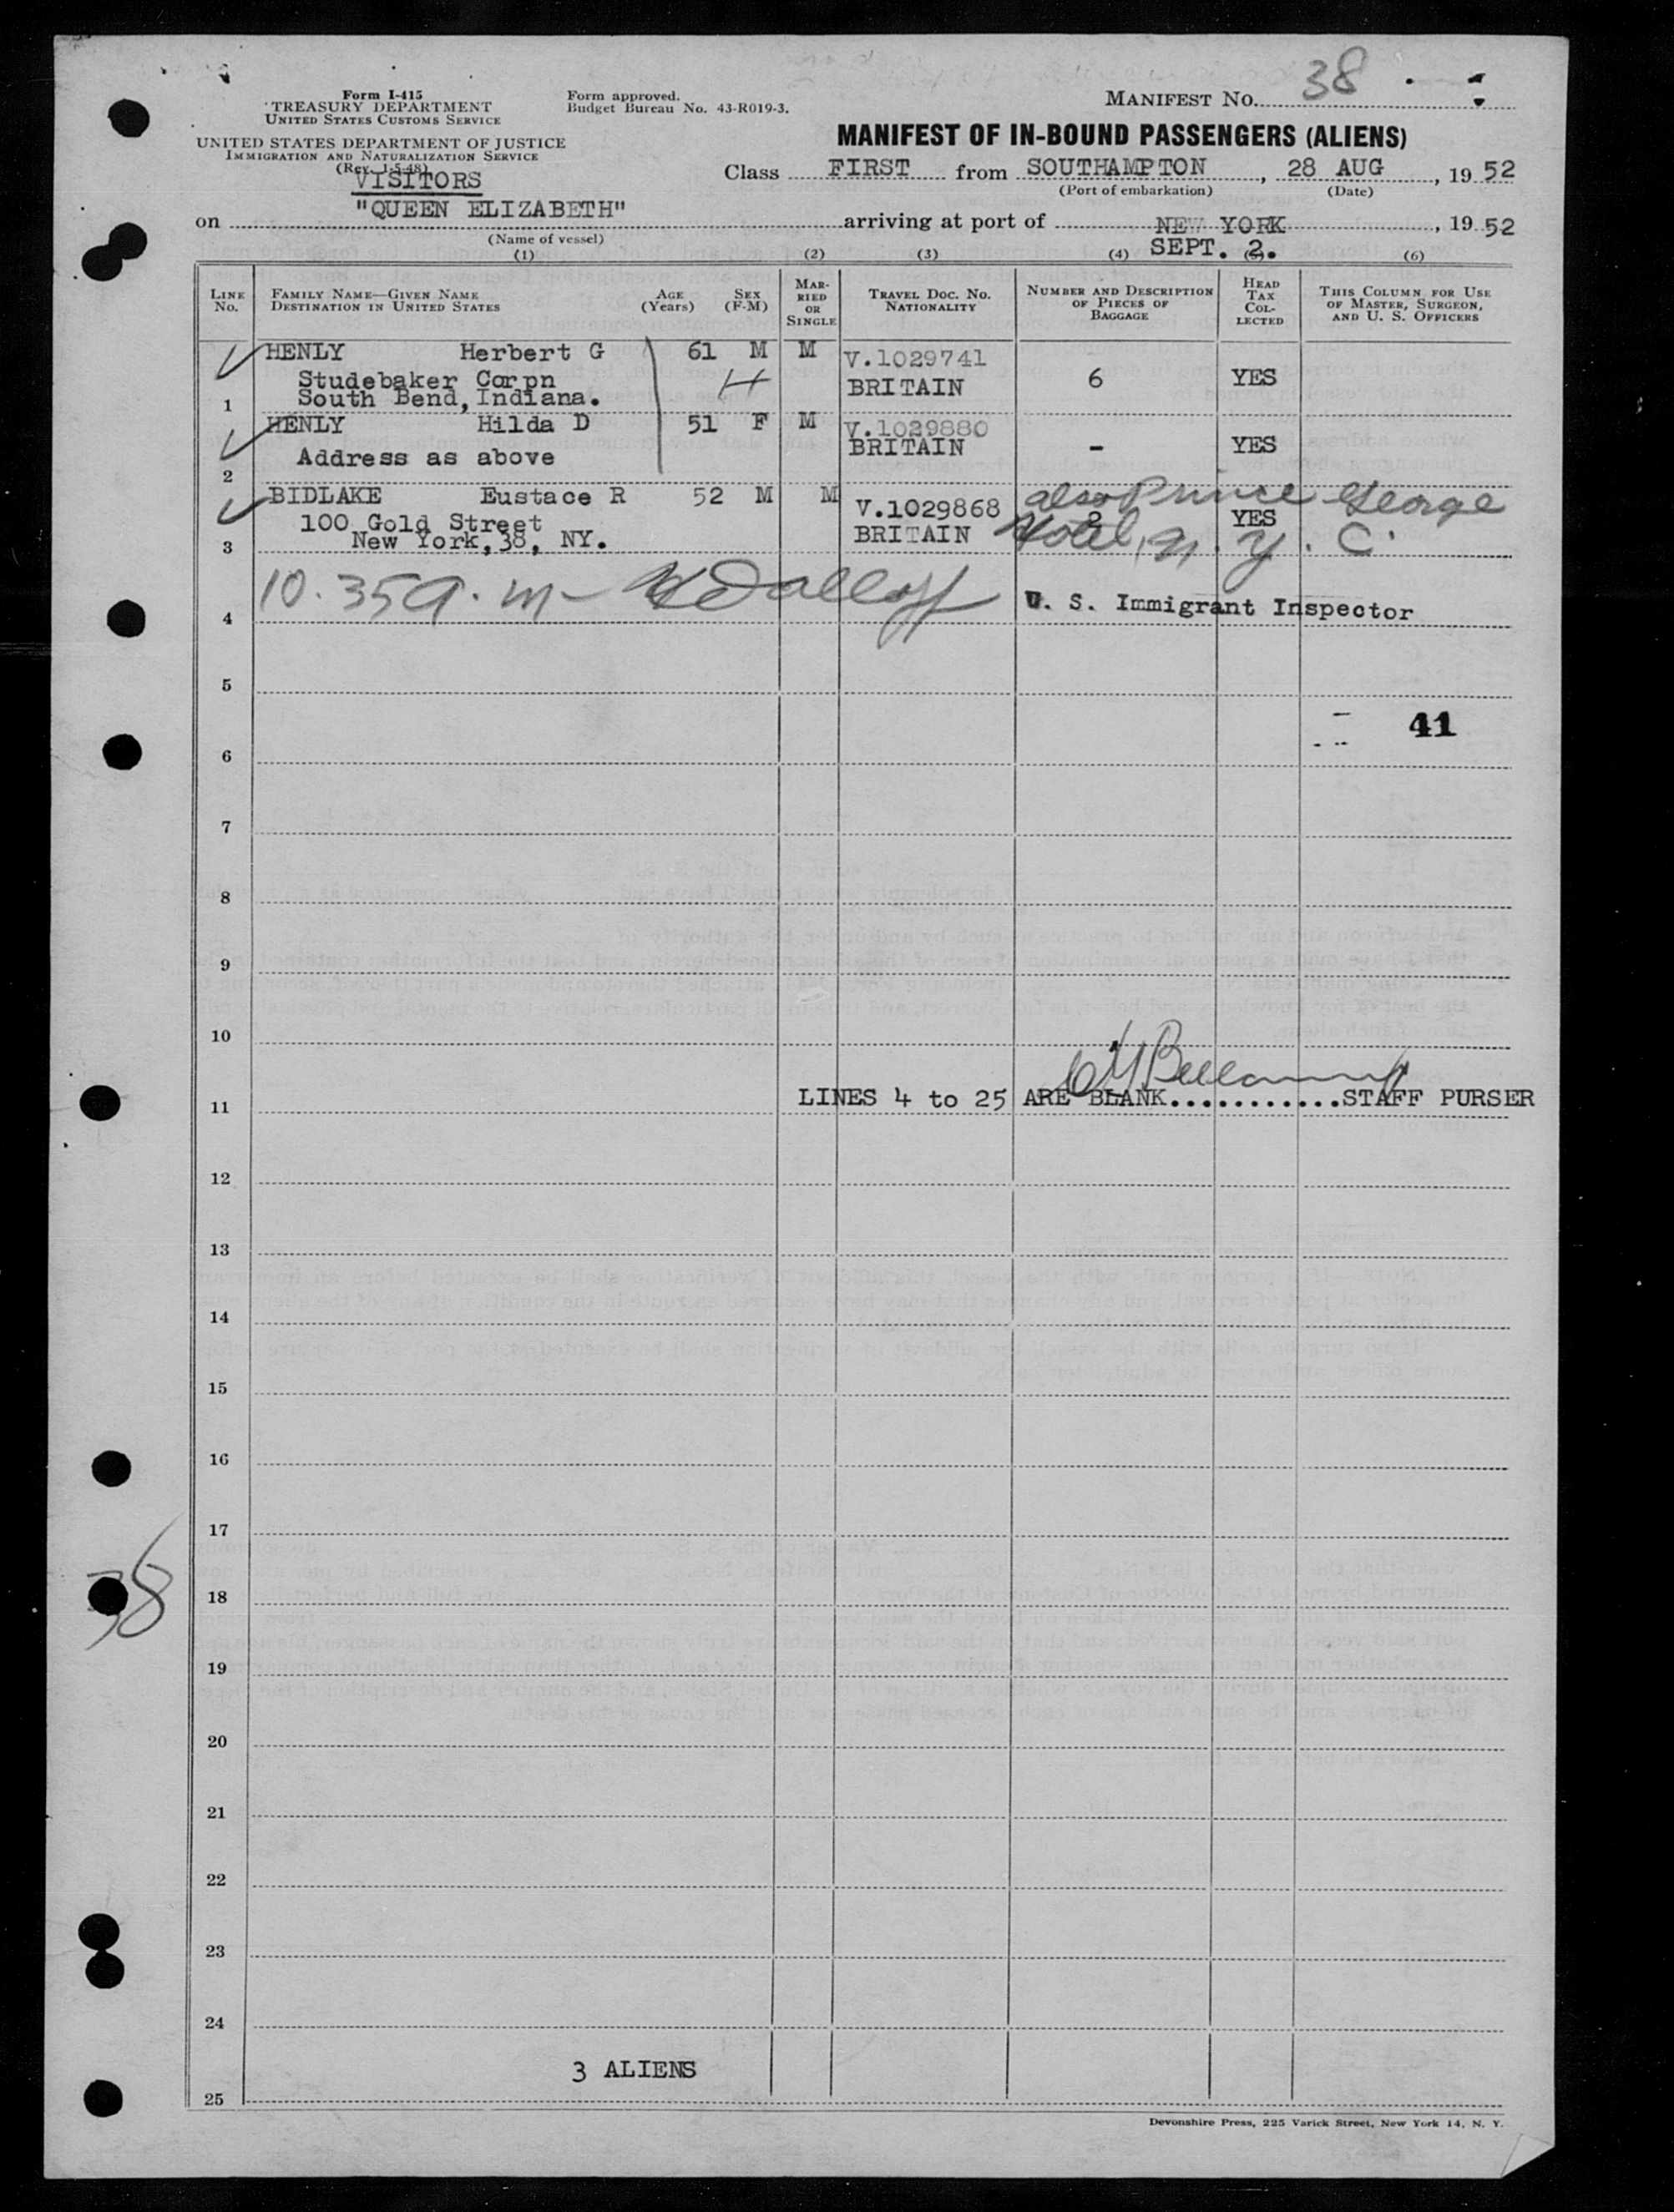 Form I-415
TREASURY DEPARTMENT
UNITED STATES CUSTOMS SERVICE
UNITED STATES DEPARTMENT OF JUSTICE
IMMIGRATION AND NATURALIZATION SERVICE
(Rev. 1-5-48)
Form approved.
Budget Bureau No. 43-R019-3.
MANIFEST NO. 38
MANIFEST OF IN-BOUND PASSENGERS (ALIENS)
VISITORS
Class FIRST from SOUTHAMPTON, 28 AUG, 19 52
(Port of embarkation) (Date)
on "QUEEN ELIZABETH" arriving at port of NEW YORK, 19 52
(Name of vessel) SEPT. 2.
(1) (2) (3) (4) (5) (6)
LINE No. FAMILY NAME—GIVEN NAME DESTINATION IN UNITED STATES AGE (Years) SEX (F-M) MARRIED OR SINGLE TRAVEL DOC. NO. NATIONALITY NUMBER AND DESCRIPTION OF PIECES OF BAGGAGE HEAD TAX COLLECTED THIS COLUMN FOR USE OF MASTER, SURGEON, AND U. S. OFFICERS
HENLY Herbert G 61 M M V.1029741
Studebaker Corpn BRITAIN 6 YES
1 South Bend, Indiana.
HENLY Hilda D 51 F M V.1029880
Address as above BRITAIN - YES
2
BIDLAKE Eustace R 52 M M V.1029868 also Prince George
100 Gold Street 2 YES
3 New York, 38, NY. BRITAIN Hotel, N.Y.C.
10.35 a.m-
4 U. S. Immigrant Inspector
5
41
6
7
8
9
10
11 LINES 4 to 25 ARE BLANK...........STAFF PURSER
12
13
14
15
16
17
38
18
19
20
21
22
23
24
3 ALIENS
25
Devonshire Press, 225 Varick Street, New York 14, N. Y.